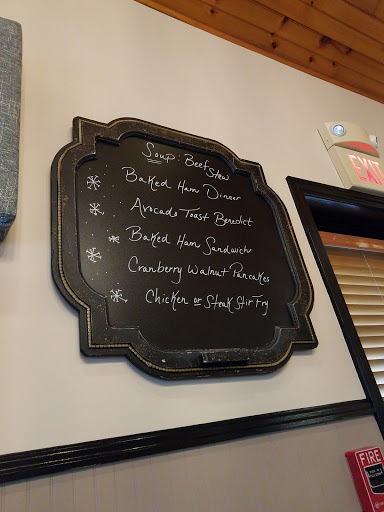 Soup: Beef Stew
Baked Ham Dinner
Avocado Toast Benedict
Baked Ham Sandwich
Cranberry Walnut Pancakes
Chicken or Steak Stir Fry
EXIT
FIRE